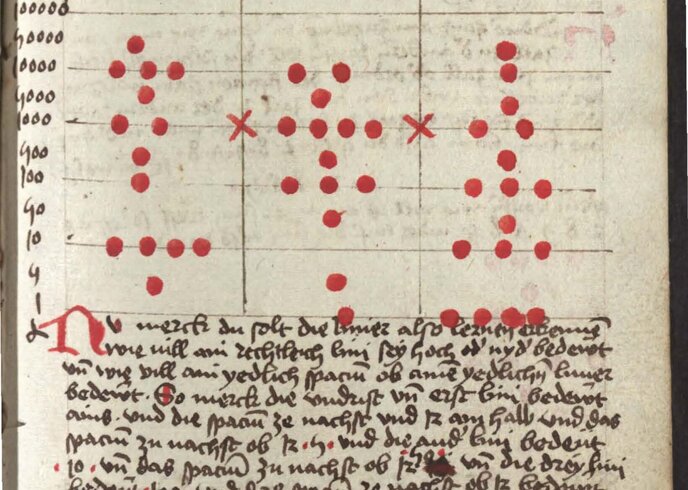 100000
50000
10000
5000
1000
500
100
50
10
5
1
Nu merck du solt die linier also lernen erkennē
wie vill ain rechtleich lini sey hoch od' nyd' bedewt
vn̄ wie vill ain yedlich spaciū ob ainē yedlichn̄ linier
bedewt. So merck die vndrist vn̄ erst lini bedewt
ains. vnd die spaciū ze nachst vnd ir ain halb vnd das
spaciū zu nachst ob ir .5. vnd die and' lini bedeut
.10. vn̄ das spaciū zu nachst ob ir vn̄ die drey lini